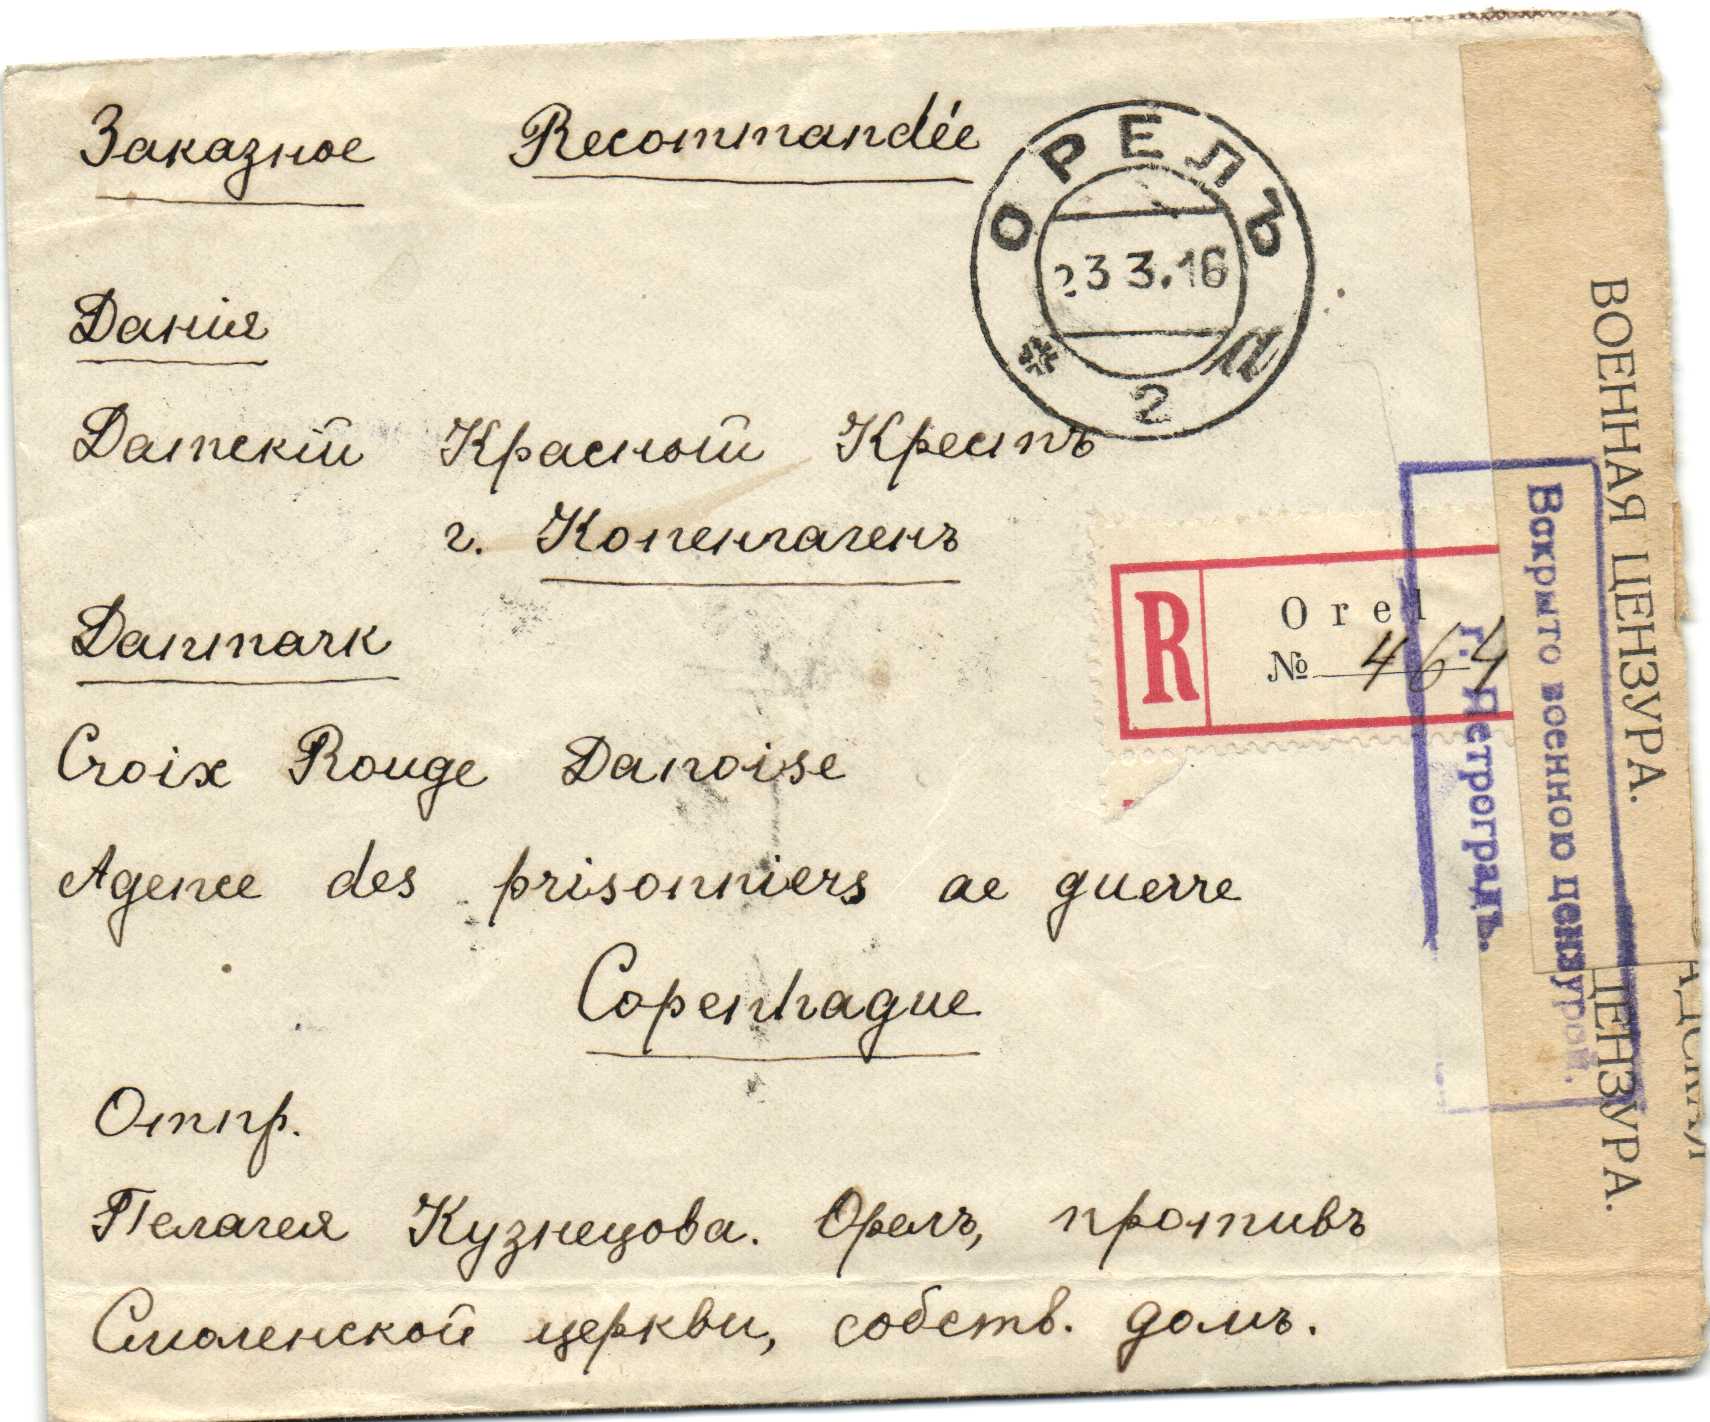 Заказное Recommandée
ОРЕЛЪ
23 3.16
* 2 а
Данія
Датскій Красный Крестъ
г. Копенгагенъ
Danmark
Croix Rouge Danoise
Agence des prisonniers de guerre
Copenhague
R
Orel
№ 464
Отпр.
Пелагея Кузнецова. Орелъ, противъ
Смоленской церкви, собств. домъ.
Вскрыто военною цензурой.
г. Петроградъ.
ВОЕННАЯ ЦЕНЗУРА.
ЦЕНЗУРА.
АДСКАЯ